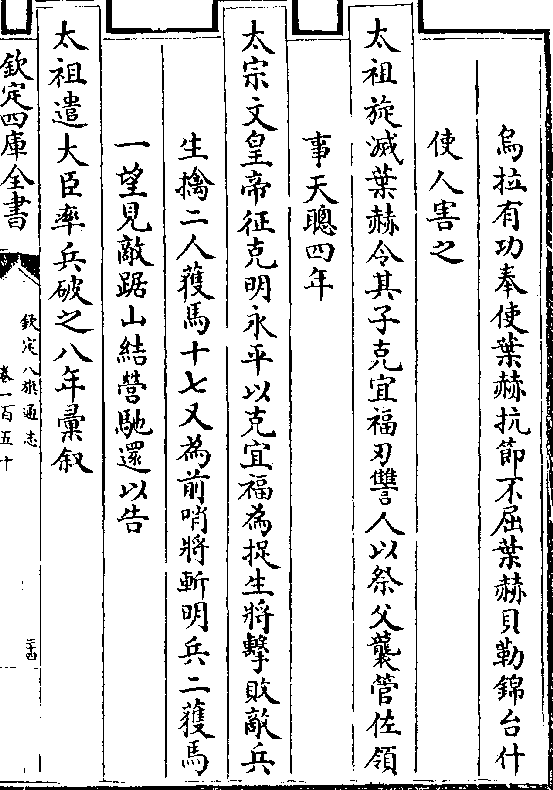 烏拉有功奉使葉赫抗節不屈葉赫貝勒錦台什
使人害之
太祖旋滅葉赫令其子克宜福刃讐人以祭父襲管佐領
事天聰四年
太宗文皇帝征克明永平以克宜福為捉生將擊敗敵兵
生擒二人獲馬十七又為前哨將斬明兵二獲馬
一望見敵踞山結營馳還以告
太祖遣大臣率兵破之八年彙叙
欽定四庫全書
欽定八旗通志
卷一百五十
二十四